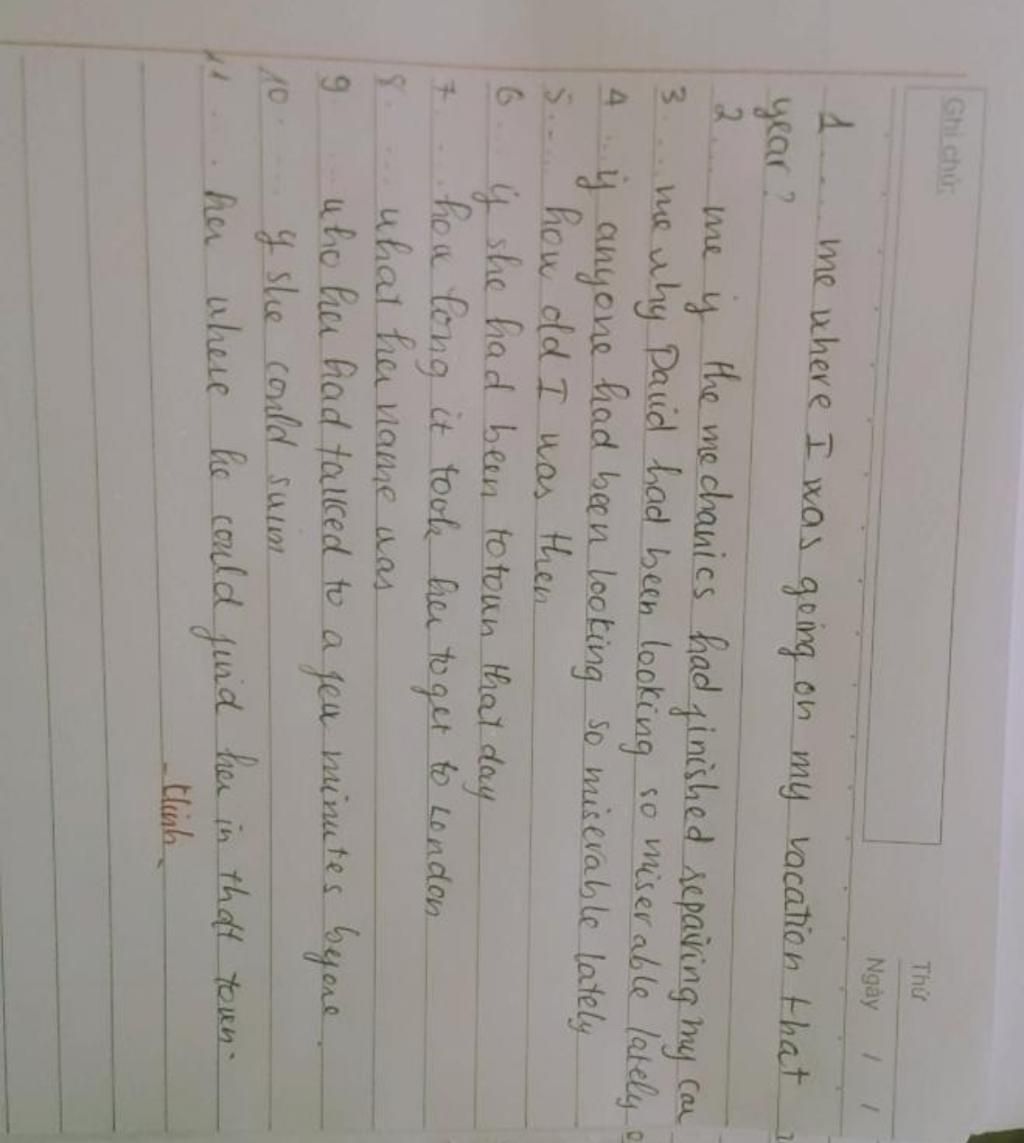 Ghi chú:
Thứ
Ngày / /
1.... me where I was going on my vacation that
year?
2.... me if the mechanics had finished repairing my car
3.... me why David had been looking so miserable lately
4... if anyone had been looking so miserable lately
5.... how old I was then
6... if she had been to town that day
7.... how long it took her to get to London
8.... what her name was
9... who her had talked to a few minutes before.
10.... if she could swim
11... her where he could find her in that town.